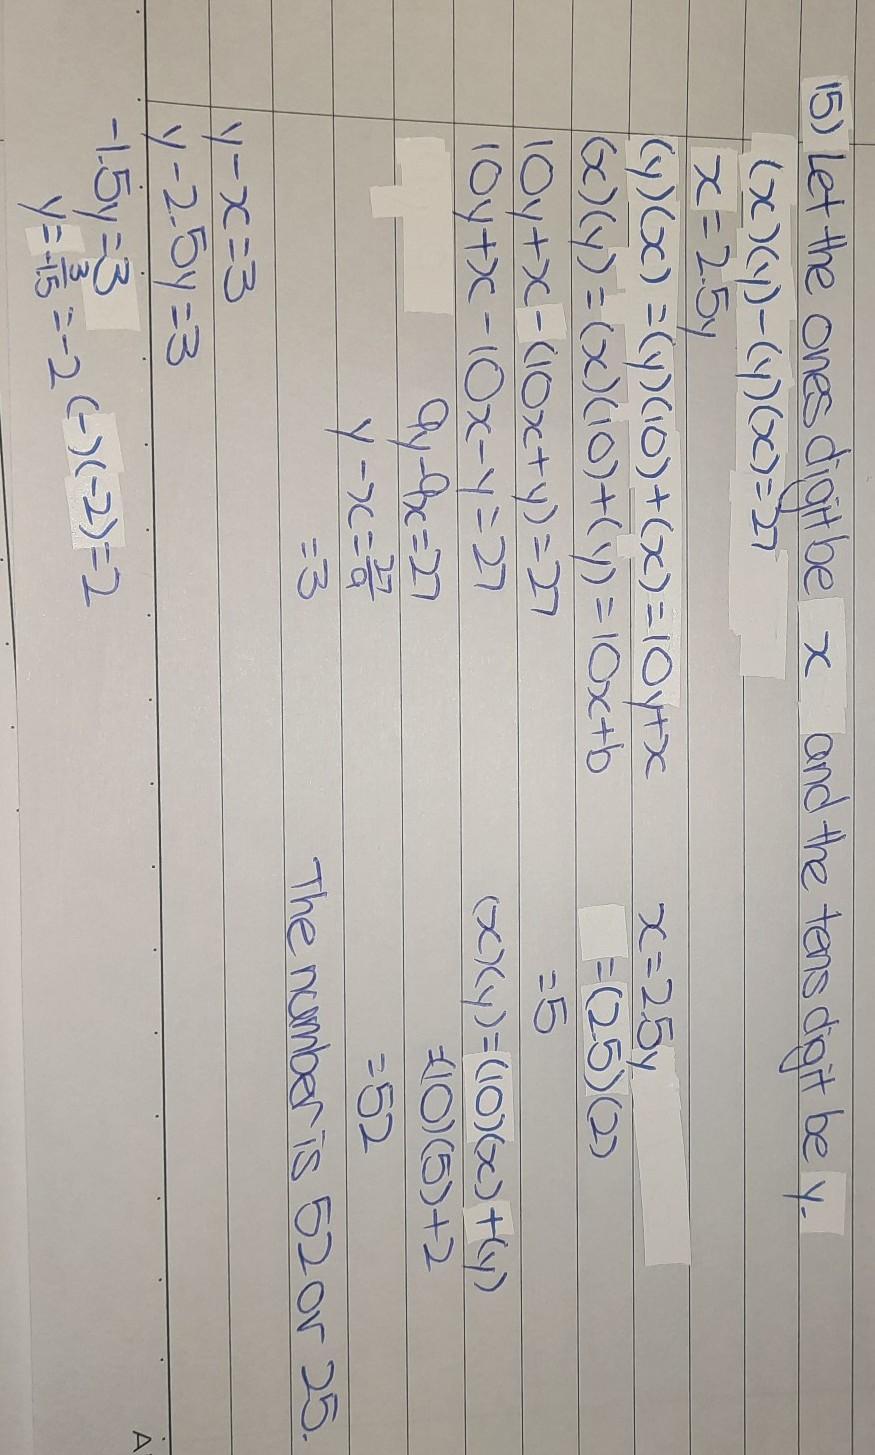 15) Let the ones digit be x and the tens digit be y.
(x)(y)-(y)(x)=27
x=2.5y
(y)(x)=(y)(10)+(x)=10y+x
(x)(y)=(x)(10)+(y)=10x+b
10y+x-(10x+y)=27
10y+x-10x-y=27
9y-9x=27
y-x=27/9
=3
y-x=3
y-2.5y=3
-1.5y=3
y=3/-1.5=-2 (-)(-2)=2
x=2.5y
=(2.5)(2)
=5
(x)(y)=(10)(x)+(y)
=(10)(5)+2
=52
The number is 52 or 25.
A